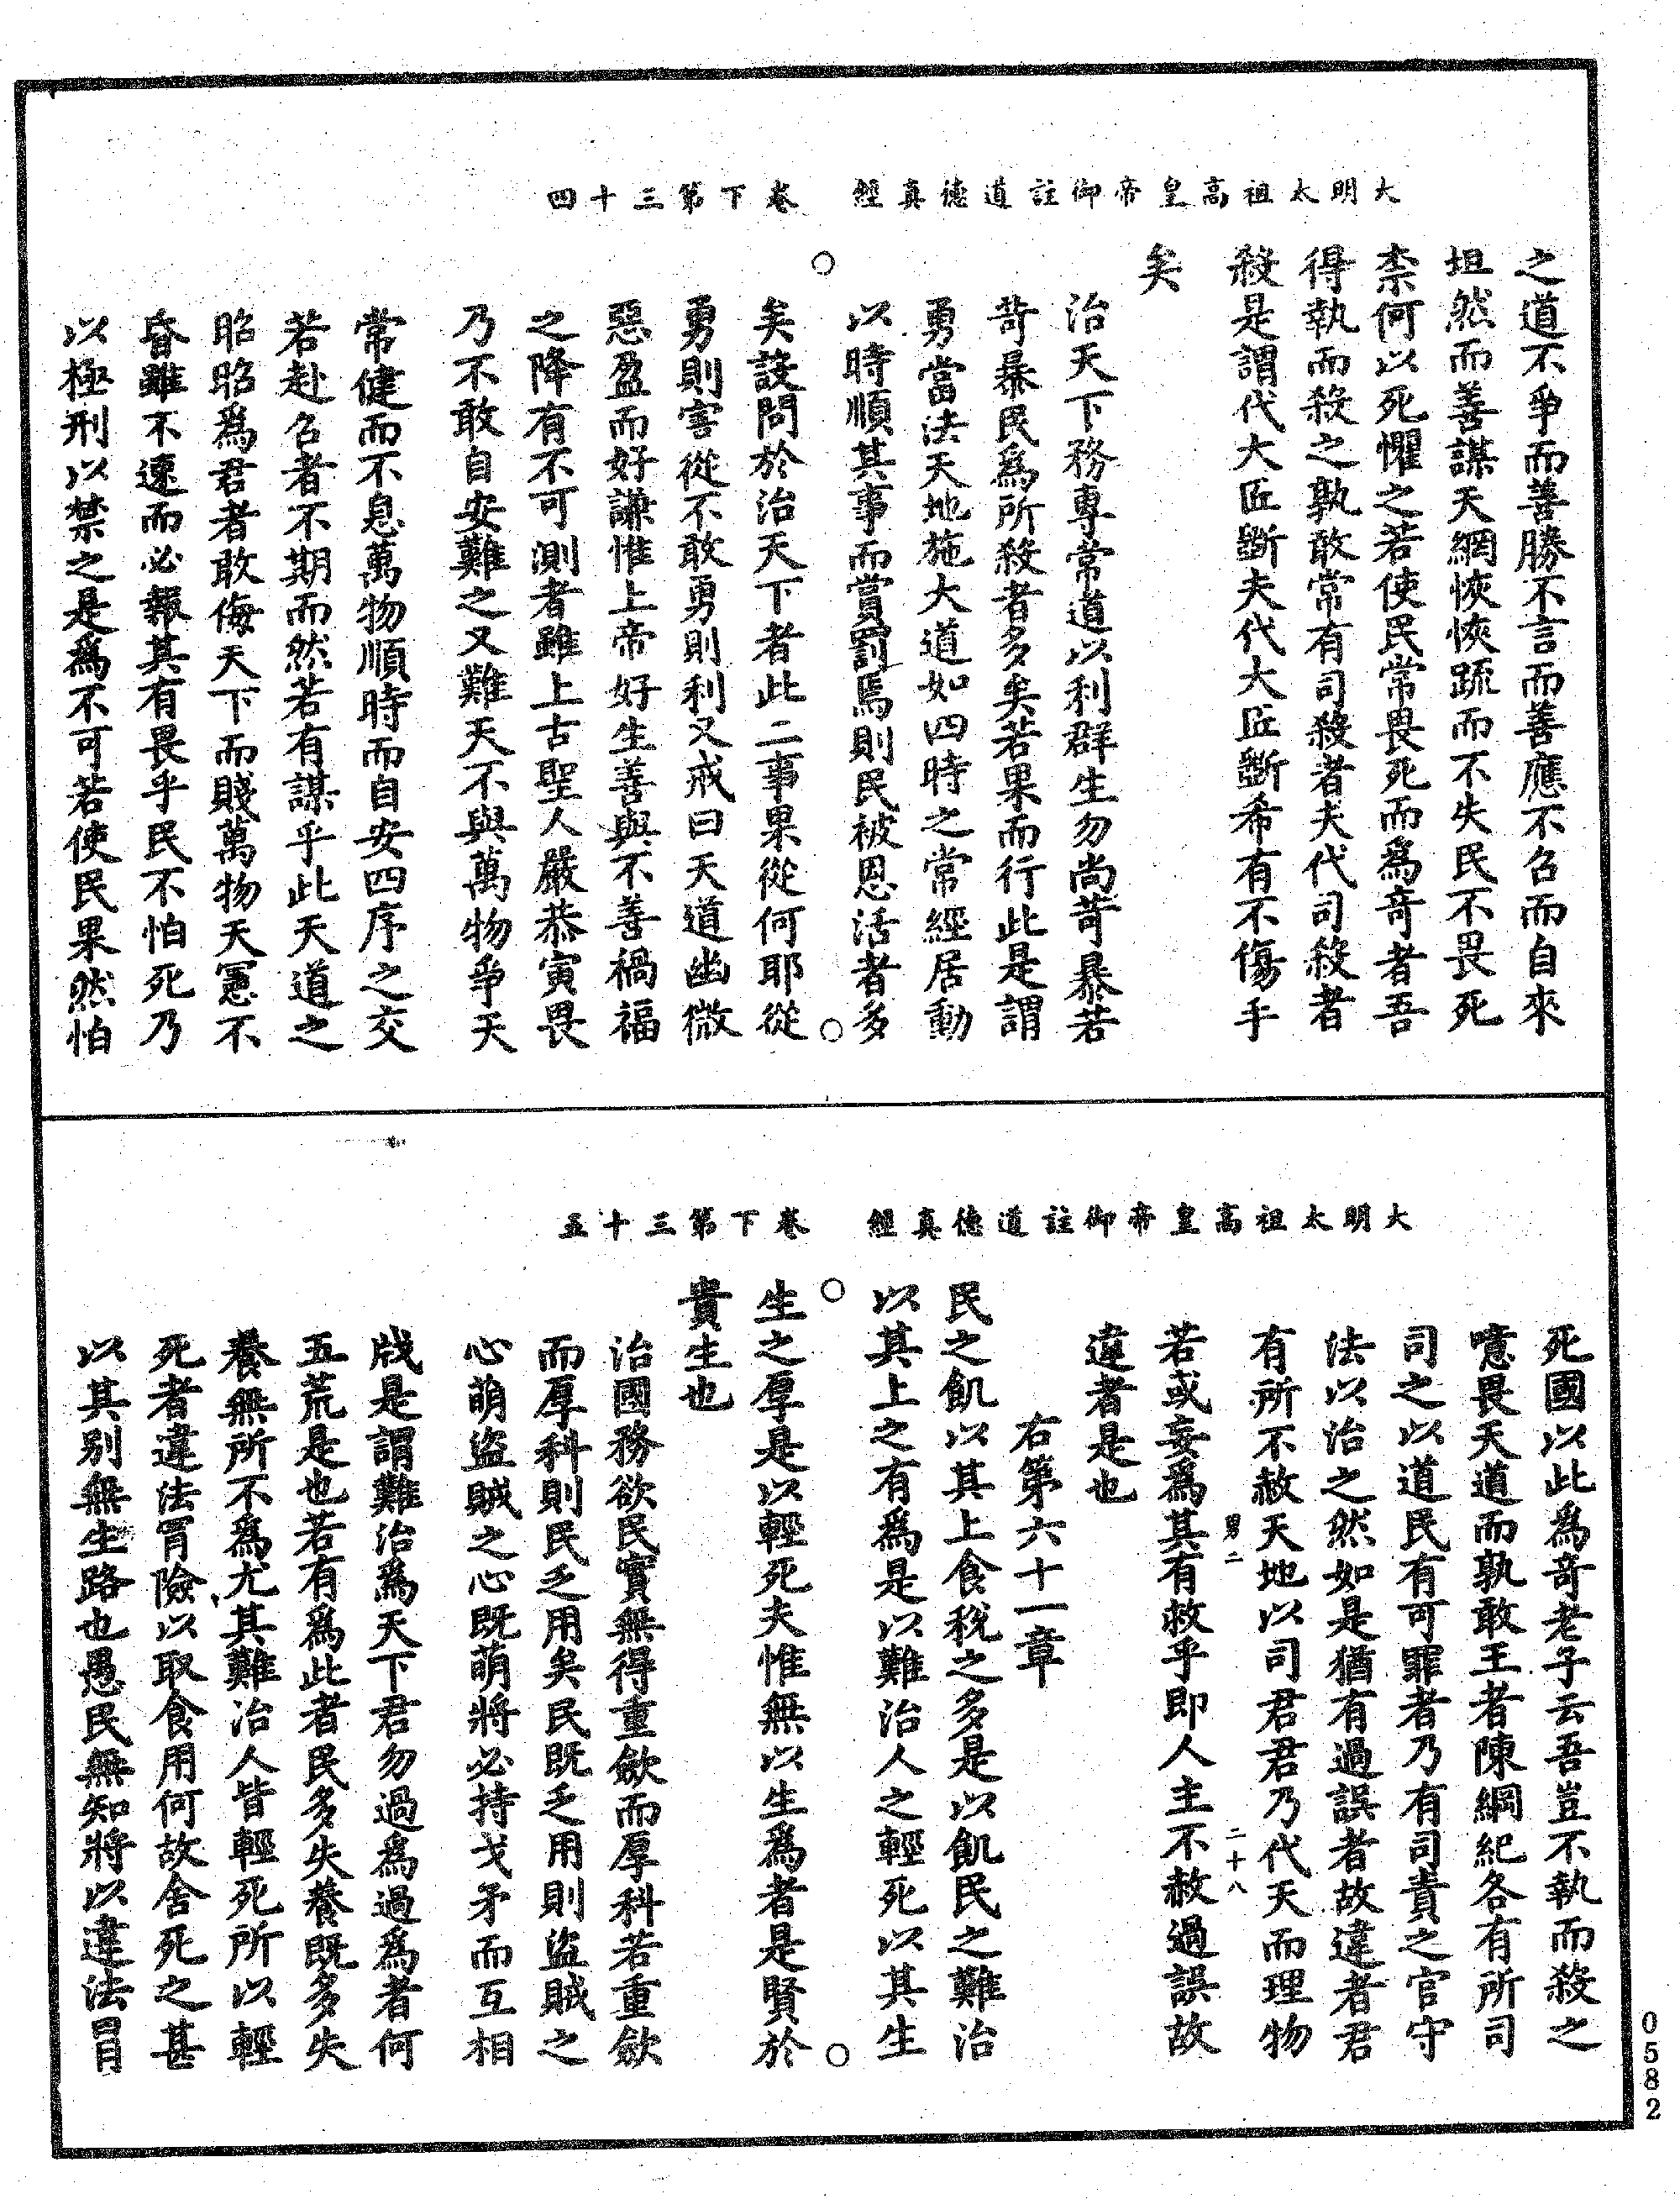 大明太祖高皇帝御註道德真經　卷下第三十四
之道不爭而善勝不言而善應不召而自來
坦然而善謀天網恢恢疏而不失民不畏死
柰何以死懼之若使民常畏死而爲竒者吾
得執而殺之孰敢常有司殺者夫代司殺者
殺是謂代大匠斲夫代大匠斲希有不傷手
矣
治天下務專常道以利群生勿尚苛暴若
苛暴民爲所殺者多矣若果而行此是謂
勇當法天地施大道如四時之常經居動
以時順其事而賞罰焉則民被恩活者多
矣設問於治天下者此二事果從何耶從
勇則害從不敢勇則利又戒曰天道幽微
惡盈而好謙惟上帝好生善與不善禍福
之降有不可測者雖上古聖人嚴恭寅畏
乃不敢自安難之又難天不與萬物爭天
常健而不息萬物順時而自安四序之交
若赴召者不期而然若有謀乎此天道之
昭昭爲君者敢侮天下而賤萬物天憲不
昏雖不速而必報其有畏乎民不怕死乃
以極刑以禁之是爲不可若使民果然怕
大明太祖高皇帝御註道德真經　卷下第三十五
死國以此爲竒老子云吾豈不執而殺之
噫畏天道而孰敢王者陳綱紀各有所司
司之以道民有可罪者乃有司責之官守
法以治之然如是猶有過誤者故違者君
有所不赦天地以司君君乃代天而理物
男二　二十八
若或妄爲其有救乎即人主不赦過誤故
違者是也
右第六十一章
民之飢以其上食稅之多是以飢民之難治
以其上之有爲是以難治人之輕死以其生
生之厚是以輕死夫惟無以生爲者是賢於
貴生也
治國務欲民實無得重斂而厚科若重斂
而厚科則民乏用矣民既乏用則盜賊之
心萌盜賊之心既萌將必持戈矛而互相
戕是謂難治爲天下君勿過爲過爲者何
五荒是也若有爲此者民多失養既多失
養無所不爲尤其難治人皆輕死所以輕
死者違法冐險以取食用何故舍死之甚
以其別無生路也愚民無知將以違法冐
0582